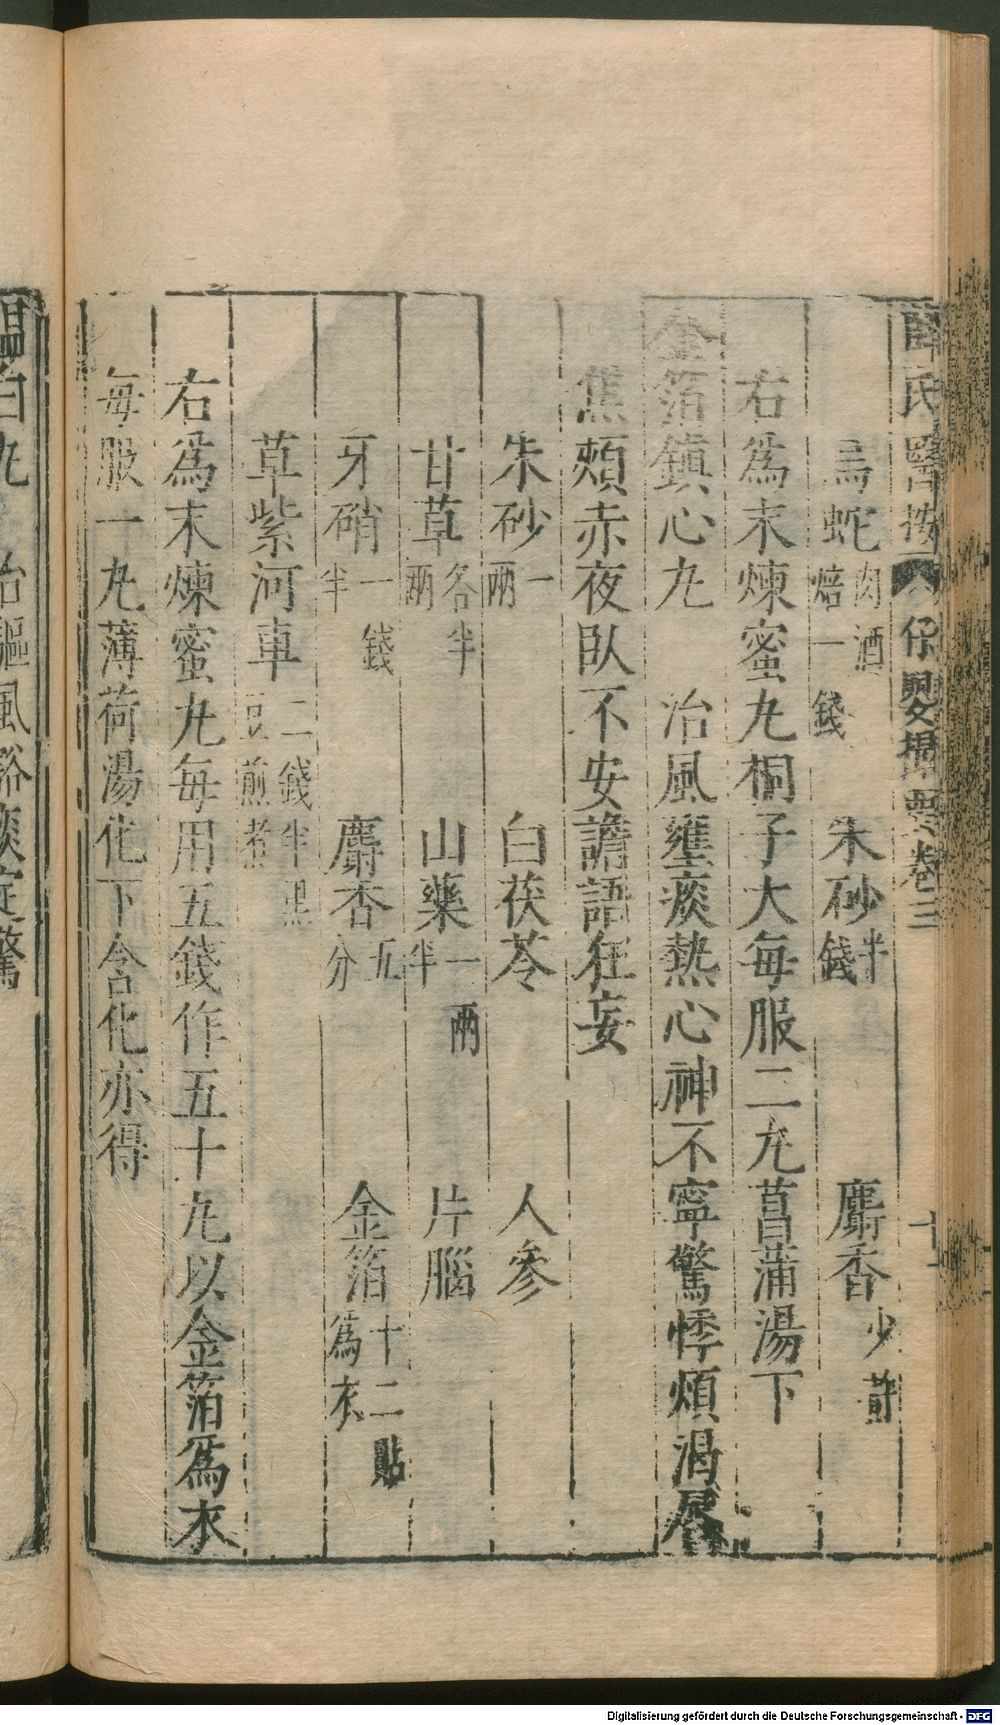 薛氏醫按 保嬰撮要卷三 十一
烏蛇肉酒焙一錢 朱砂半錢 麝香少許
右爲末煉蜜丸桐子大每服二丸菖蒲湯下
金箔鎮心丸 治風壅痰熱心神不寧驚悸煩渴唇
焦頰赤夜臥不安譫語狂妄
朱砂一兩 白茯苓 人參
甘草各半兩 山藥一兩半 片腦
牙硝一錢半 麝香五分 金箔十二貼爲衣
草紫河車二錢半黑豆煎煮
右爲末煉蜜丸每用五錢作五十丸以金箔爲衣
每服一丸薄荷湯化下含化亦得
温白丸 治驅風豁痰定驚
Digitalisierung gefördert durch die Deutsche Forschungsgemeinschaft - DFG